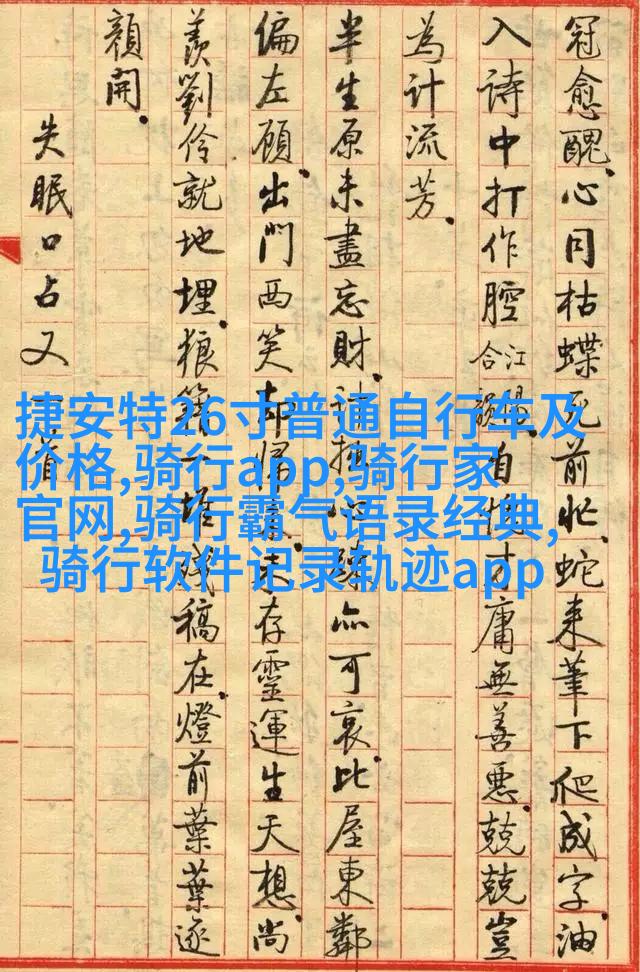 冠愈醜、心同枯蝶死前忙、蛇来筆下爬成字、油
入詩中打作腔 江合 自愧才庸無善惡、兢兢豈
為計流芳。
半生原未盡忘財、亦可哀。比屋東鄰
偏左顧、出門西笑却歸来、存靈運生天想、尚
羨劉伶就地埋。狼籍一堆残稿在、燈前葉葉逐
顏開。
失眠口占又一首
捷安特26寸普通自行车及
价格,骑行app,骑行家
官网,骑行霸气语录经典,
骑行软件记录轨迹app